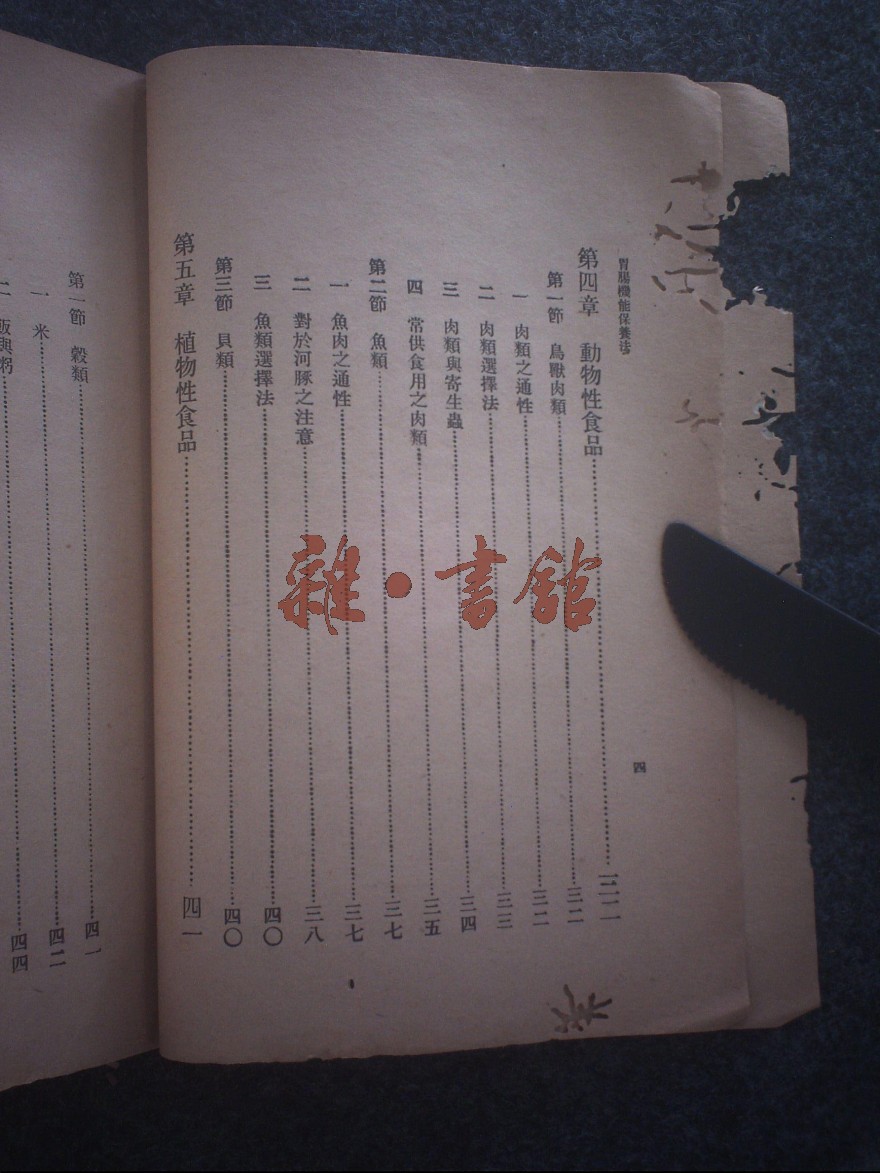 胃腸機能保養法
四
第四章　動物性食品……三二
第一節　鳥獸肉類……三二
一　肉類之通性……三二
二　肉類選擇法……三三
三　肉類與寄生蟲……三四
四　常供食用之肉類……三五
第二節　魚類……三七
一　魚肉之通性……三七
二　對於河豚之注意……三八
三　魚類選擇法……四〇
第三節　貝類……四〇
第五章　植物性食品……四一
第一節　穀類……四一
一　米……四二
二　飯與粥……四四
雜·書館